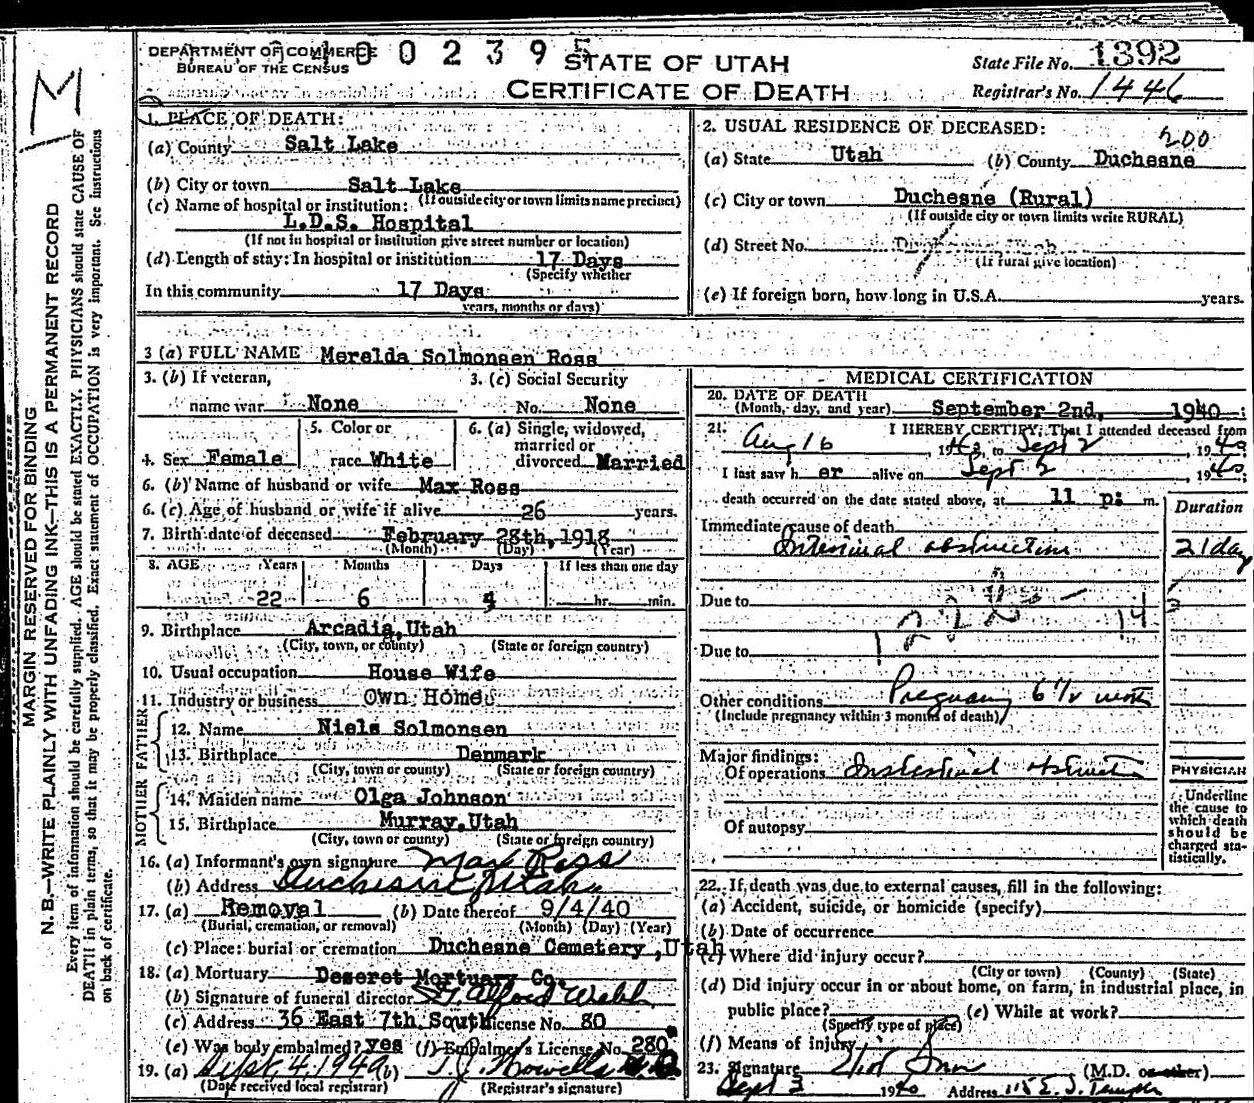 DEPARTMENT OF COMMERCE
BUREAU OF THE CENSUS
002395
STATE OF UTAH
CERTIFICATE OF DEATH
State File No. 1392
Registrar's No. 1446
M
MARGIN RESERVED FOR BINDING
N. B.—WRITE PLAINLY WITH UNFADING INK—THIS IS A PERMANENT RECORD
Every item of information should be carefully supplied. AGE should be stated EXACTLY. PHYSICIANS should state CAUSE OF
DEATH in plain terms, so that it may be properly classified. Exact statement of OCCUPATION is very important. See instructions
on back of certificate.
1. PLACE OF DEATH:
(a) County Salt Lake
(b) City or town Salt Lake
(If outside city or town limits name precinct)
(c) Name of hospital or institution:
L.D.S. Hospital
(If not in hospital or institution give street number or location)
(d) Length of stay: In hospital or institution 17 Days
(Specify whether
In this community 17 Days
years, months or days)
2. USUAL RESIDENCE OF DECEASED:
200
(a) State Utah (b) County Duchesne
(c) City or town Duchesne (Rural)
(If outside city or town limits write RURAL)
(d) Street No.
(If rural give location)
(e) If foreign born, how long in U.S.A. years.
3 (a) FULL NAME Merelda Solmonsen Ross
3. (b) If veteran,
name war None
3. (c) Social Security
No. None
4. Sex Female
5. Color or
race White
6. (a) Single, widowed,
married or
divorced Married
6. (b) Name of husband or wife Max Ross
6. (c) Age of husband or wife if alive 26 years.
7. Birth date of deceased February 28th, 1918
(Month) (Day) (Year)
8. AGE Years Months Days If less than one day
22 6 4 hr. min.
9. Birthplace Arcadia, Utah
(City, town, or county) (State or foreign country)
10. Usual occupation House Wife
11. Industry or business Own Home
FATHER
12. Name Niels Solmonsen
13. Birthplace Denmark
(City, town or county) (State or foreign country)
MOTHER
14. Maiden name Olga Johnson
15. Birthplace Murray, Utah
(City, town or county) (State or foreign country)
16. (a) Informant's own signature Max Ross
(b) Address Duchesne, Utah
17. (a) Removal (b) Date thereof 9/4/40
(Burial, cremation, or removal) (Month) (Day) (Year)
(c) Place: burial or cremation Duchesne Cemetery, Utah
18. (a) Mortuary Deseret Mortuary Co.
(b) Signature of funeral director Alford Webb
(c) Address 36 East 7th South License No. 80
(e) Was body embalmed? yes (f) Embalmer's License No. 280
19. (a) Sept 4 1940 (b) T. J. Howells
(Date received local registrar) (Registrar's signature)
MEDICAL CERTIFICATION
20. DATE OF DEATH
(Month, day, and year) September 2nd, 1940
21. I HEREBY CERTIFY, That I attended deceased from
Aug 16, 1940, to Sept 2, 1940,
I last saw her alive on Sept 2, 1940,
death occurred on the date stated above, at 11 p: m.
Duration
Immediate cause of death
Intestinal obstruction 21 day
Due to
Due to
Other conditions Pregnancy 6 1/2
(Include pregnancy within 3 months of death)
Major findings:
Of operations Intestinal obstruction
Of autopsy
PHYSICIAN
Underline
the cause to
which death
should be
charged sta-
tistically.
22. If death was due to external causes, fill in the following:
(a) Accident, suicide, or homicide (specify)
(b) Date of occurrence
(c) Where did injury occur?
(City or town) (County) (State)
(d) Did injury occur in or about home, on farm, in industrial place, in
public place? (e) While at work?
(Specify type of place)
(f) Means of injury
23. Signature (M.D. or other)
Sept 3 1940 Address 115 E. S. Temple